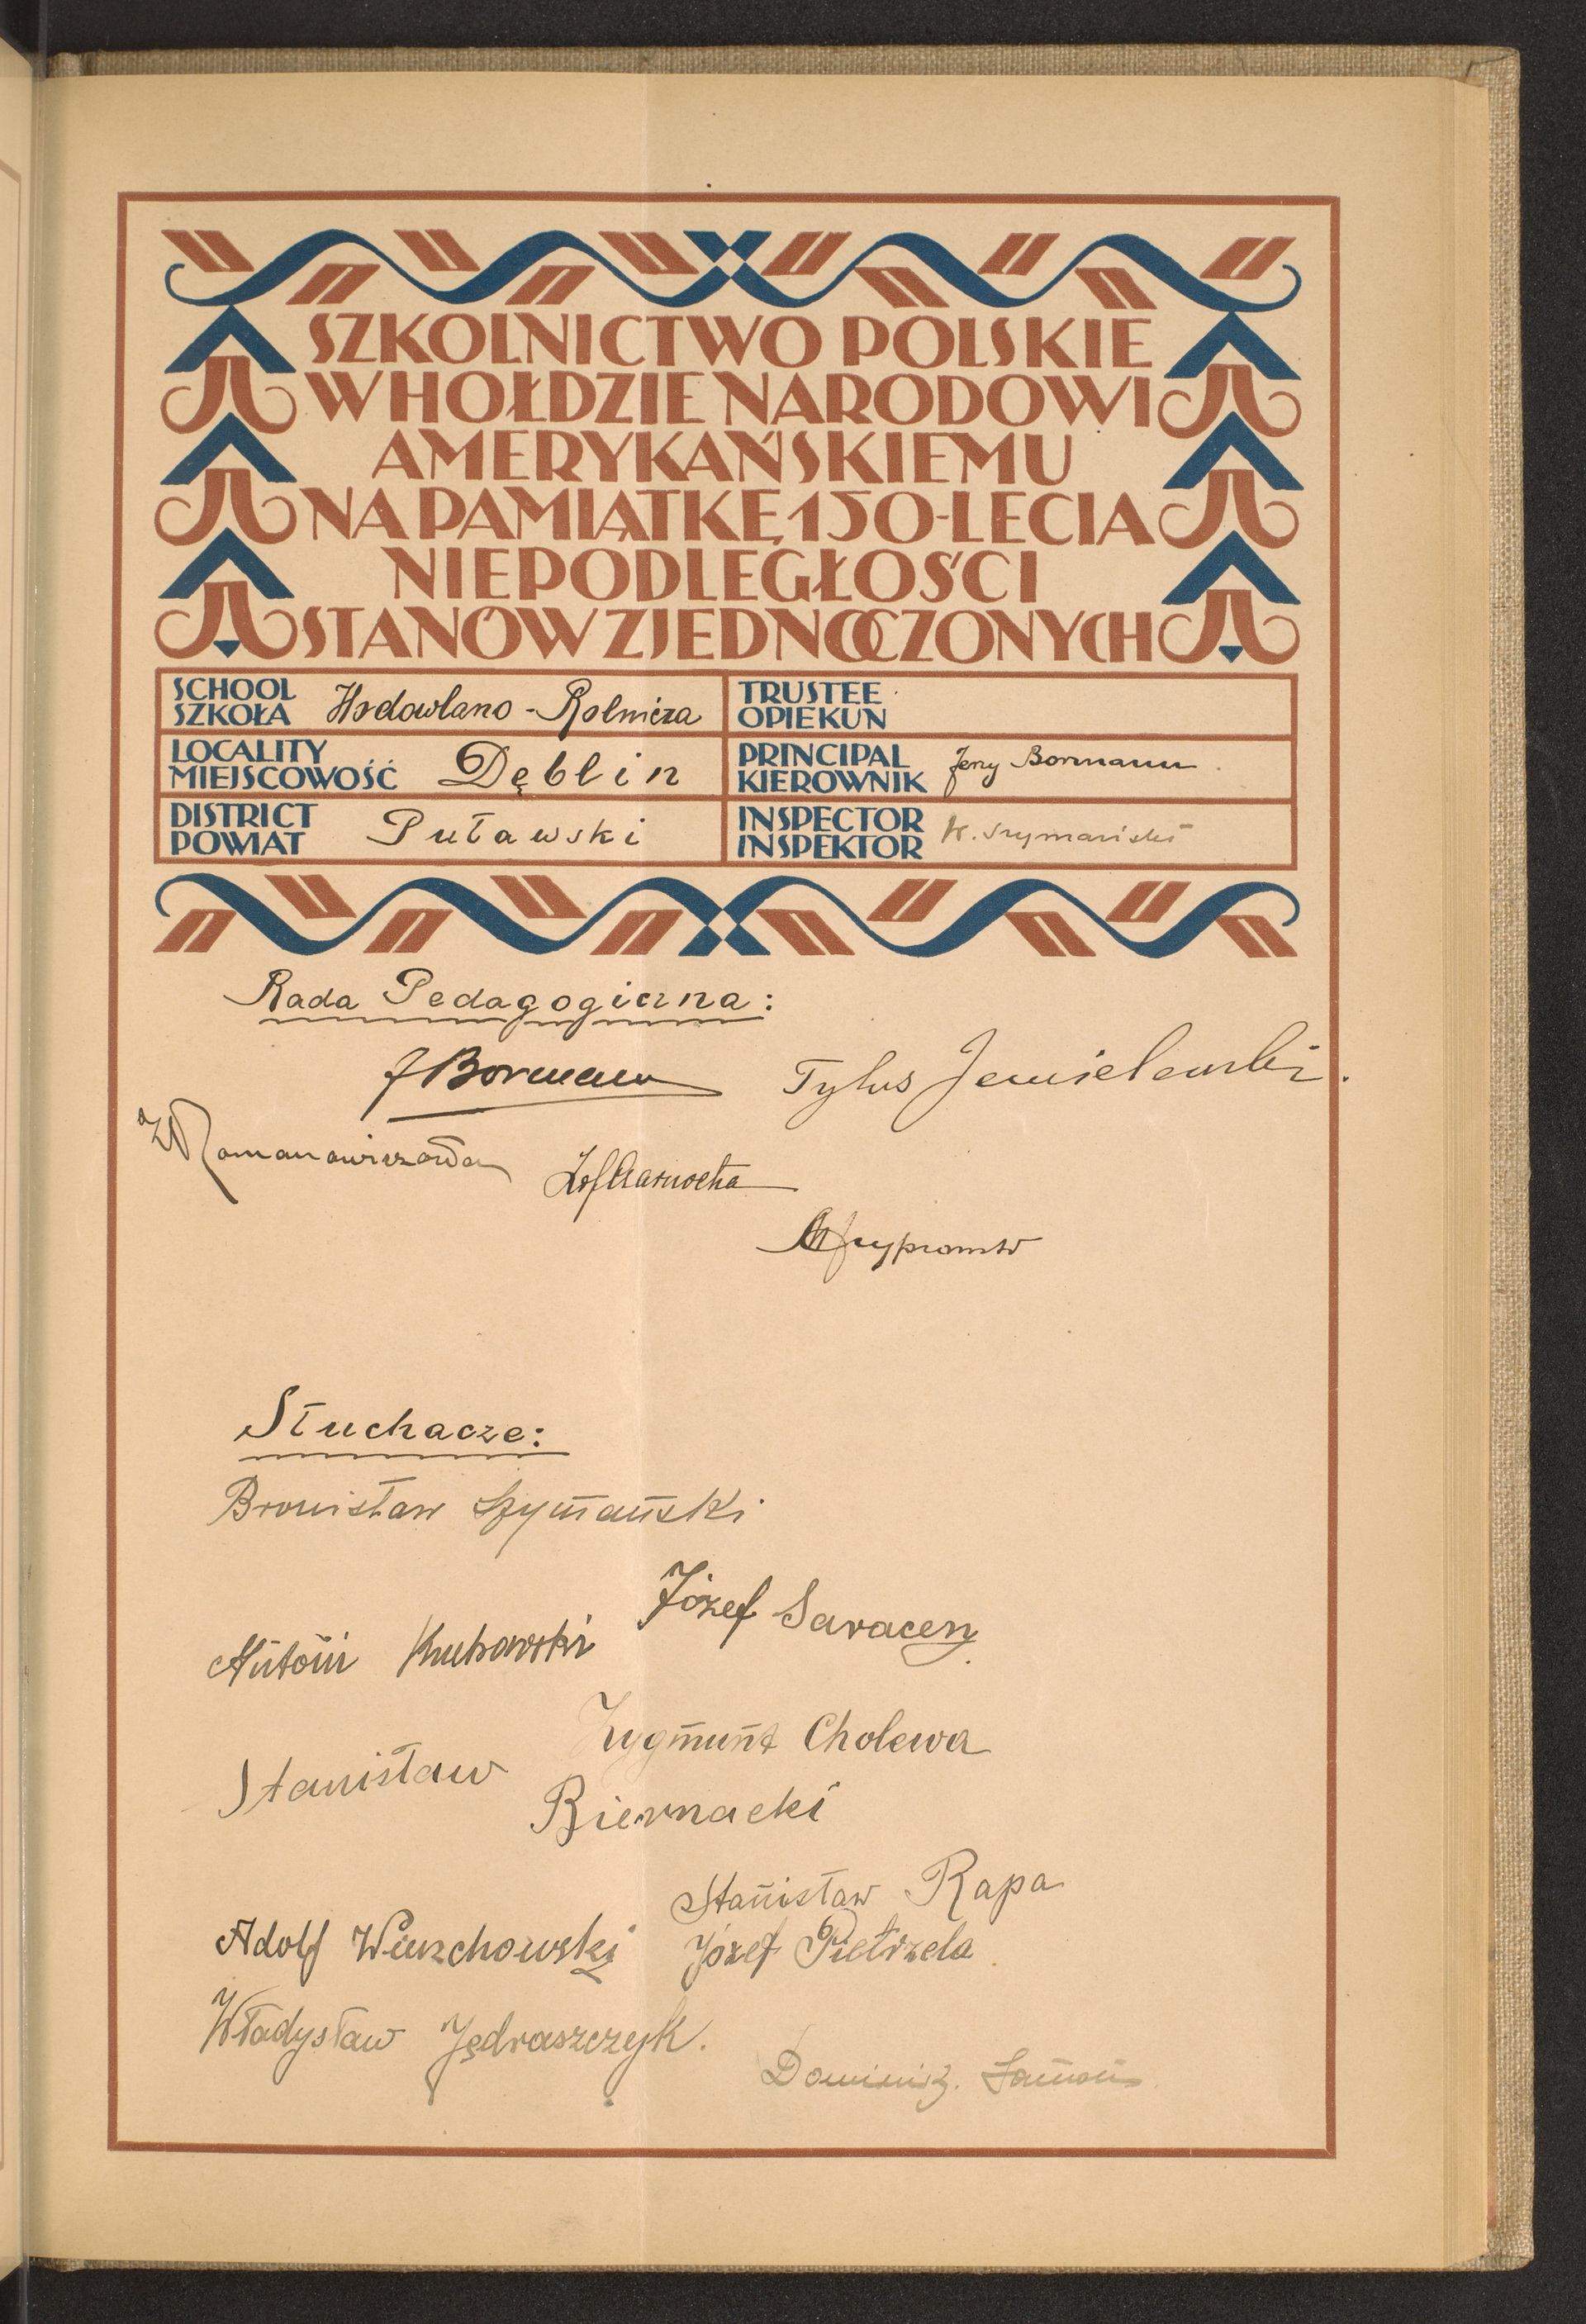 SZKOLNICTWO POLSKIE
W HOŁDZIE NARODOWI
AMERYKAŃSKIEMU
NA PAMIĄTKĘ 150-LECIA
NIEPODLEGŁOŚCI
STANÓW ZJEDNOCZONYCH
SCHOOL
SZKOŁA Hodowlano - Rolnicza
TRUSTEE
OPIEKUN
LOCALITY
MIEJSCOWOŚĆ Dęblin
PRINCIPAL
KIEROWNIK Jerzy Bormann
DISTRICT
POWIAT Puławski
INSPECTOR
INSPEKTOR K. Szymański
Rada Pedagogiczna:
J Bormann
Tytus Jemielewski.
Romanowiczowa
Słuchacze:
Bronisław Szymański
Józef Saraceny
Antoni
Zygmunt Cholewa
Stanisław Biernacki
Stanisław Rapa
Adolf Wierzchowski
Józef Pietrzela
Władysław Jędraszczyk.
Dominik